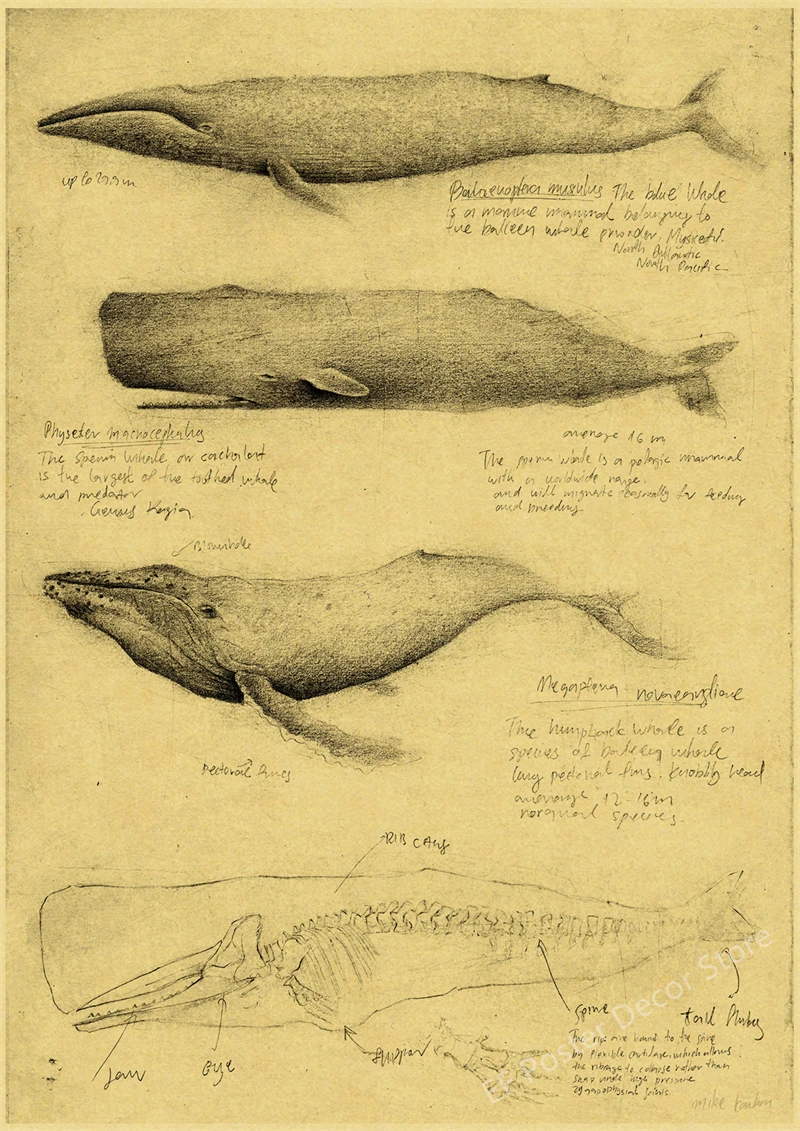 up to 29.9 m
Balaenoptera musculus The blue Whale
is a marine mammal belonging to
the baleen whale Mysticeti.
North Atlantic
North Pacific
Physeter macrocephalus
The sperm whale or cachalot
is the largest of the toothed whale
and predator
Genus Kogia
average 16 m
The sperm whale is a pelagic mammal
with a worldwide range.
and will migrate seasonally for feeding
and breeding
Blowhole
Megaptera novaeangliae
The humpback whale is a
species of baleen whale
long pectoral fins. Knobbly head
average 12-16m
norqual species.
Pectoral fins
RIB CAGE
Spine
tail fluke
Jaw
eye
flipper
The rips are bound to the spine
by flexible cartilage, which allows
the ribcage to collapse rather than
snap under high pressure
Poster Decor Store
mike